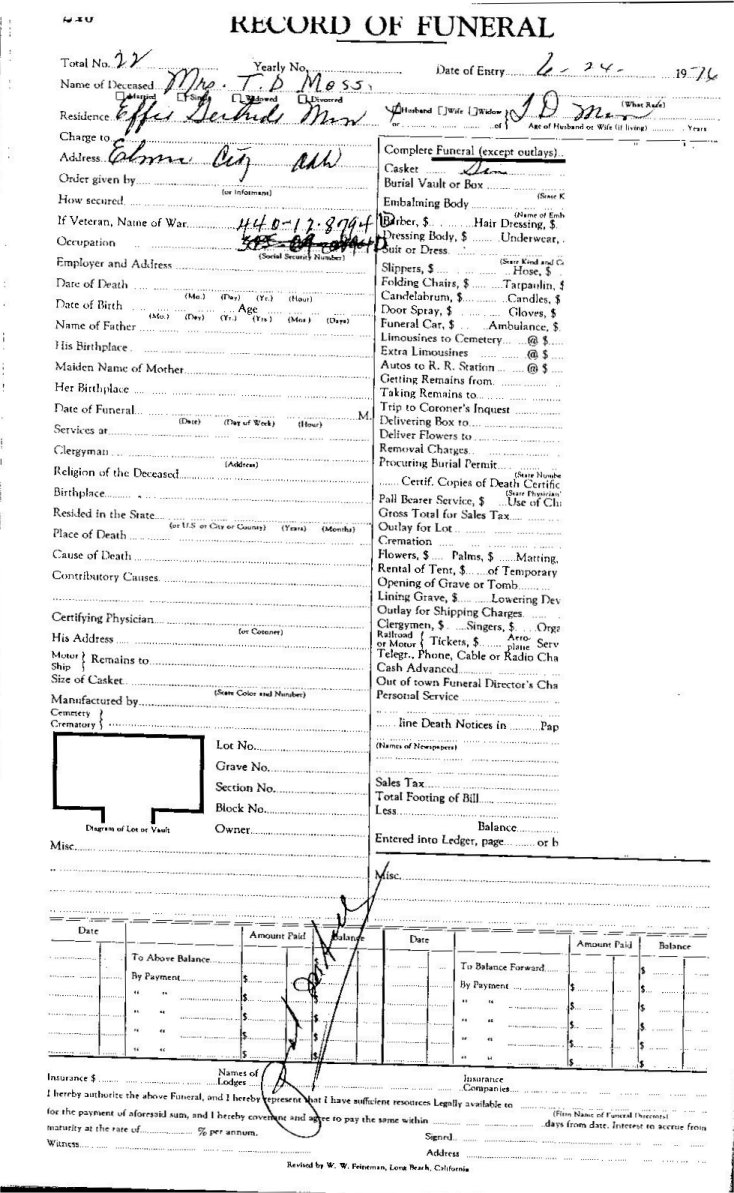 RECORD OF FUNERAL
Total No. 22 Yearly No. Date of Entry 6 - 24 - 1976
Name of Deceased Mrs. T. D Moss.
Married Single Widowed Divorced (What Race)
Residence Effie Gertrude Moss Husband Wife Widow T D Moss
or of Age of Husband or Wife (if living) Years
Charge to
Address City
Order given by
(or Informant)
How secured
If Veteran, Name of War 440-12-8794
Occupation
(Social Security Number)
Employer and Address
Date of Death
(Mo.) (Day) (Yr.) (Hour)
Date of Birth Age
(Mo.) (Day) (Yr.) (Yrs.) (Mos.) (Days)
Name of Father
His Birthplace
Maiden Name of Mother
Her Birthplace
Date of Funeral M.
(Date) (Day of Week) (Hour)
Services at
Clergyman
(Address)
Religion of the Deceased
Birthplace
Resided in the State
(or U.S. or City or County) (Years) (Months)
Place of Death
Cause of Death
Contributory Causes
Certifying Physician
(or Coroner)
His Address
Motor } Remains to
Ship
Size of Casket
(State Color and Number)
Manufactured by
Cemetery }
Crematory
Lot No.
Grave No.
Section No.
Block No.
Diagram of Lot or Vault Owner
Misc.
Complete Funeral (except outlays)
Casket
Burial Vault or Box
(State K
Embalming Body
(Name of Emb
Barber, $ Hair Dressing, $
Dressing Body, $ Underwear,
Suit or Dress
(State Kind and C
Slippers, $ Hose, $
Folding Chairs, $ Tarpaulin, $
Candelabrum, $ Candles, $
Door Spray, $ Gloves, $
Funeral Car, $ Ambulance, $
Limousines to Cemetery @ $
Extra Limousines @ $
Autos to R. R. Station @ $
Getting Remains from
Taking Remains to
Trip to Coroner's Inquest
Delivering Box to
Deliver Flowers to
Removal Charges
Procuring Burial Permit
(State Numbe
Certif. Copies of Death Certific
(State Physician'
Pall Bearer Service, $ Use of Cha
Gross Total for Sales Tax
Outlay for Lot
Cremation
Flowers, $ Palms, $ Matting,
Rental of Tent, $ of Temporary
Opening of Grave or Tomb
Lining Grave, $ Lowering Dev
Outlay for Shipping Charges
Clergymen, $ Singers, $ Orga
Railroad or Motor { Tickers, $ Aero-plane Serv
Telegr., Phone, Cable or Radio Cha
Cash Advanced
Out of town Funeral Director's Cha
Personal Service
line Death Notices in Pap
(Names of Newspapers)
Sales Tax
Total Footing of Bill
Less
Balance
Entered into Ledger, page or b
Misc.
Date Amount Paid Balance Date Amount Paid Balance
To Above Balance To Balance Forward $
By Payment $ By Payment $ $
" " $ " " $ $
" " $ " " $ $
" " $ " " $ $
" " $ $ " " $ $
Insurance $ Names of Lodges Insurance Companies
I hereby authorize the above Funeral, and I hereby represent that I have sufficient resources Legally available to
(Firm Name of Funeral Directors)
for the payment of aforesaid sum, and I hereby covenant and agree to pay the same within days from date. Interest to accrue from
maturity at the rate of % per annum. Signed
Witness Address
Revised by W. W. Feineman, Long Beach, California